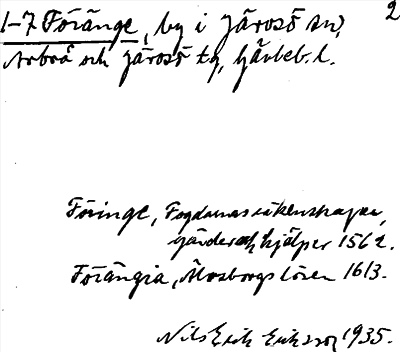 2
1-7 Föränge, by i Järvsö sn,
Arbrå och Järvsö tg, Gävleb. l.
Föringe, Fogdarnas räkenskaper,
gärder och hjälper 1562.
Förängia, Älvsborgs lösen 1613.
Nils Erik Eriksson 1935.